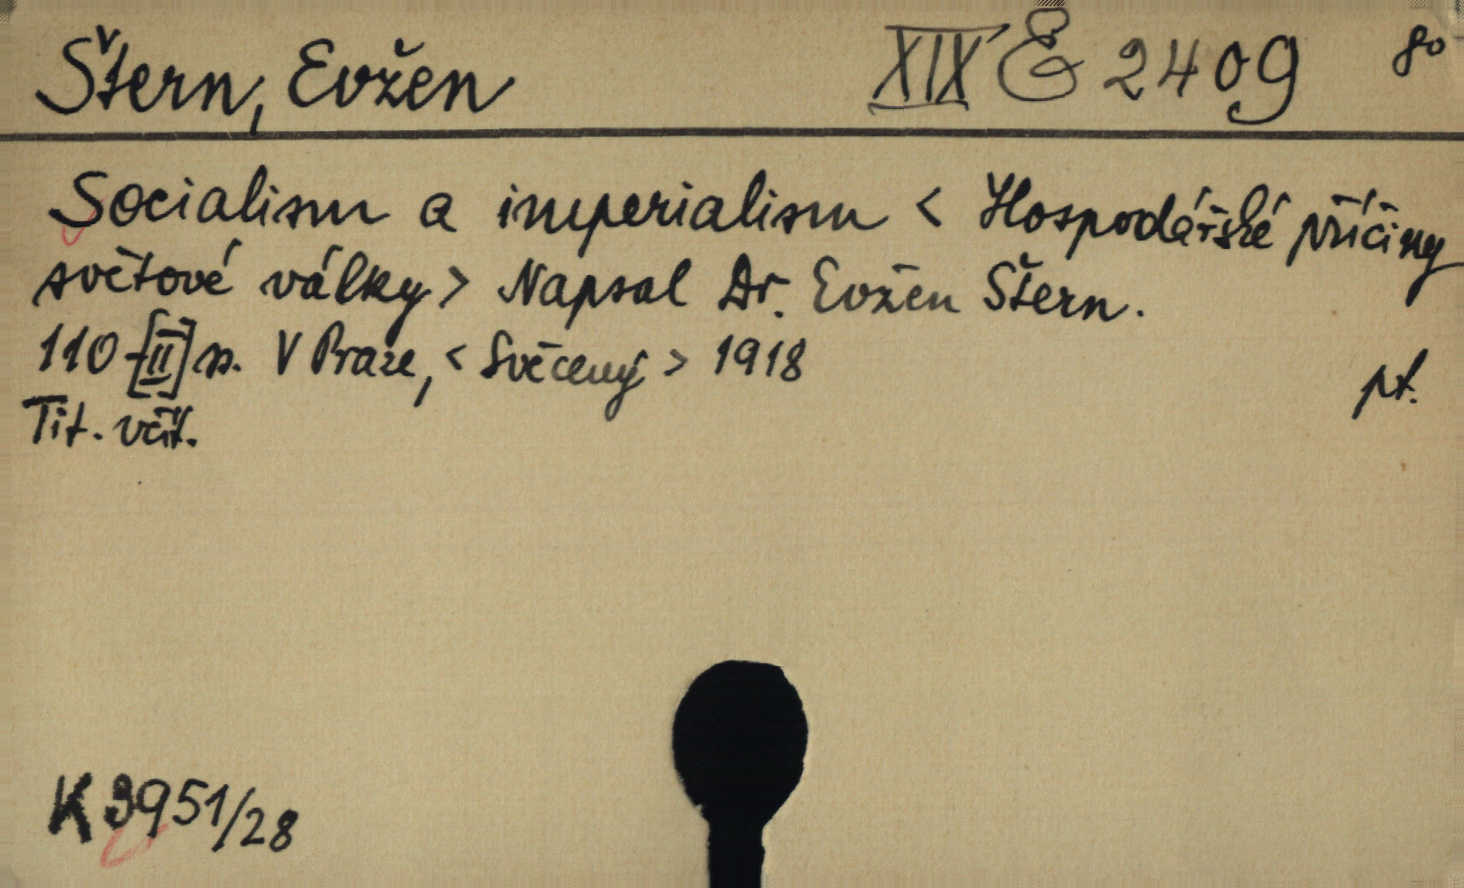 Štern, Evžen XIX E 2409 8°
Socialism a imperialism < Hospodářské příčiny
světové války > Napsal Dr. Evžen Štern.
110-[II] s. V Praze, < Svěcený > 1918
pt.
Tit. včít.
K 3951/28